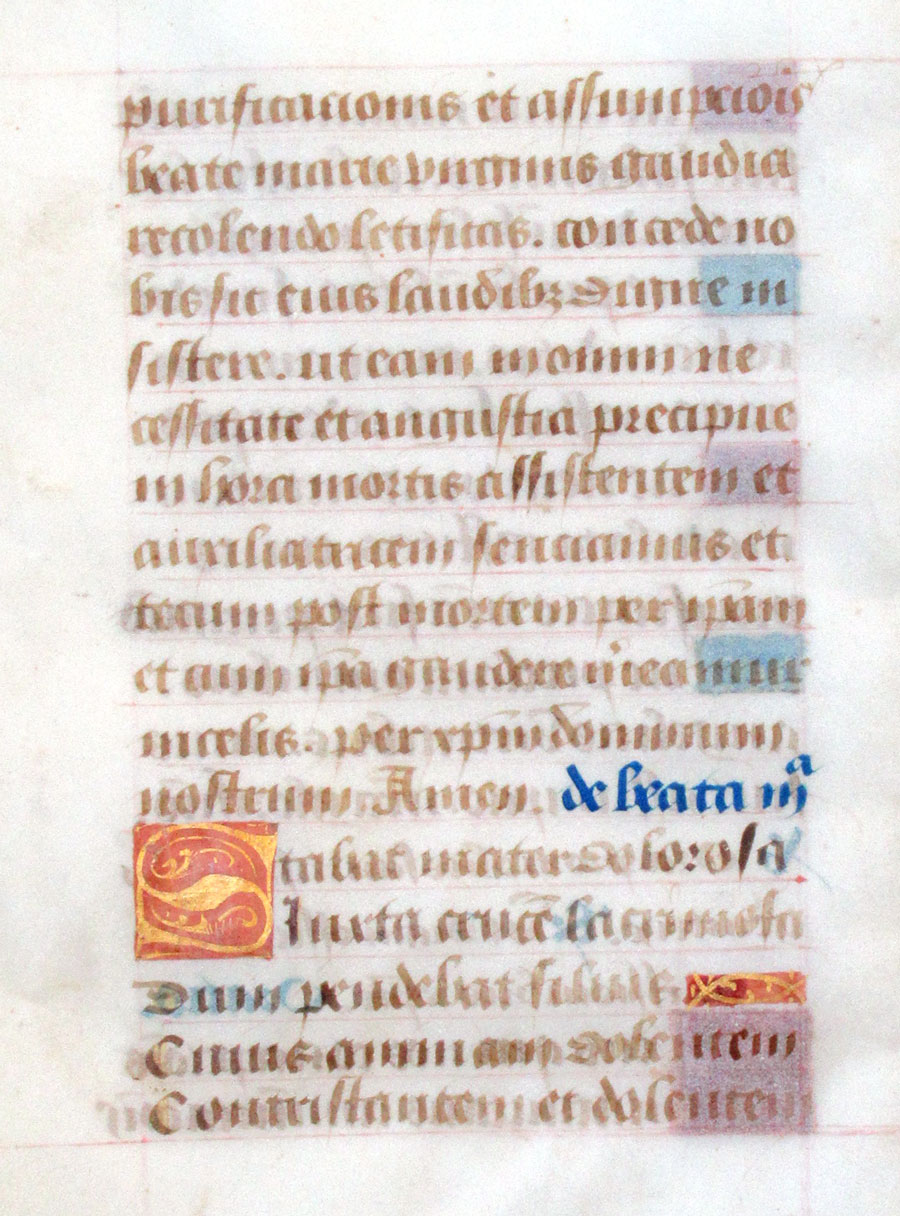 purificacionis et assumpciois
beate marie virginis gaudia
recolendo letificas. concede no
bis sic eius laudibꝫ digne in
sistere. ut eam in omni ne
cessitate et angustia precipue
in hora mortis assistentem et
auxiliatricem senciamus et
tecum post mortem per ip̄am
et cum ip̄a gaudere mereamur
in celis. per xp̄m dominum
nostrum Amen. de beata mᵃ
Stabat mater dolorosa
Iuxta crucē lacrimosa
Dum pendebat filius
Cuius animam dolentem
Contristantem et dolentem